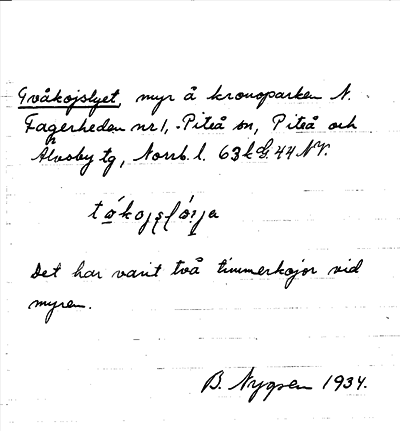 Tvåkojslyet, myr å kronoparken N.
Fagerheden nr 1, Piteå sn, Piteå och
Älvsby tg, Norrb. l. 63kG44NV.
Det har varit två timmerkojor vid
myren.
B. Nygren 1934.